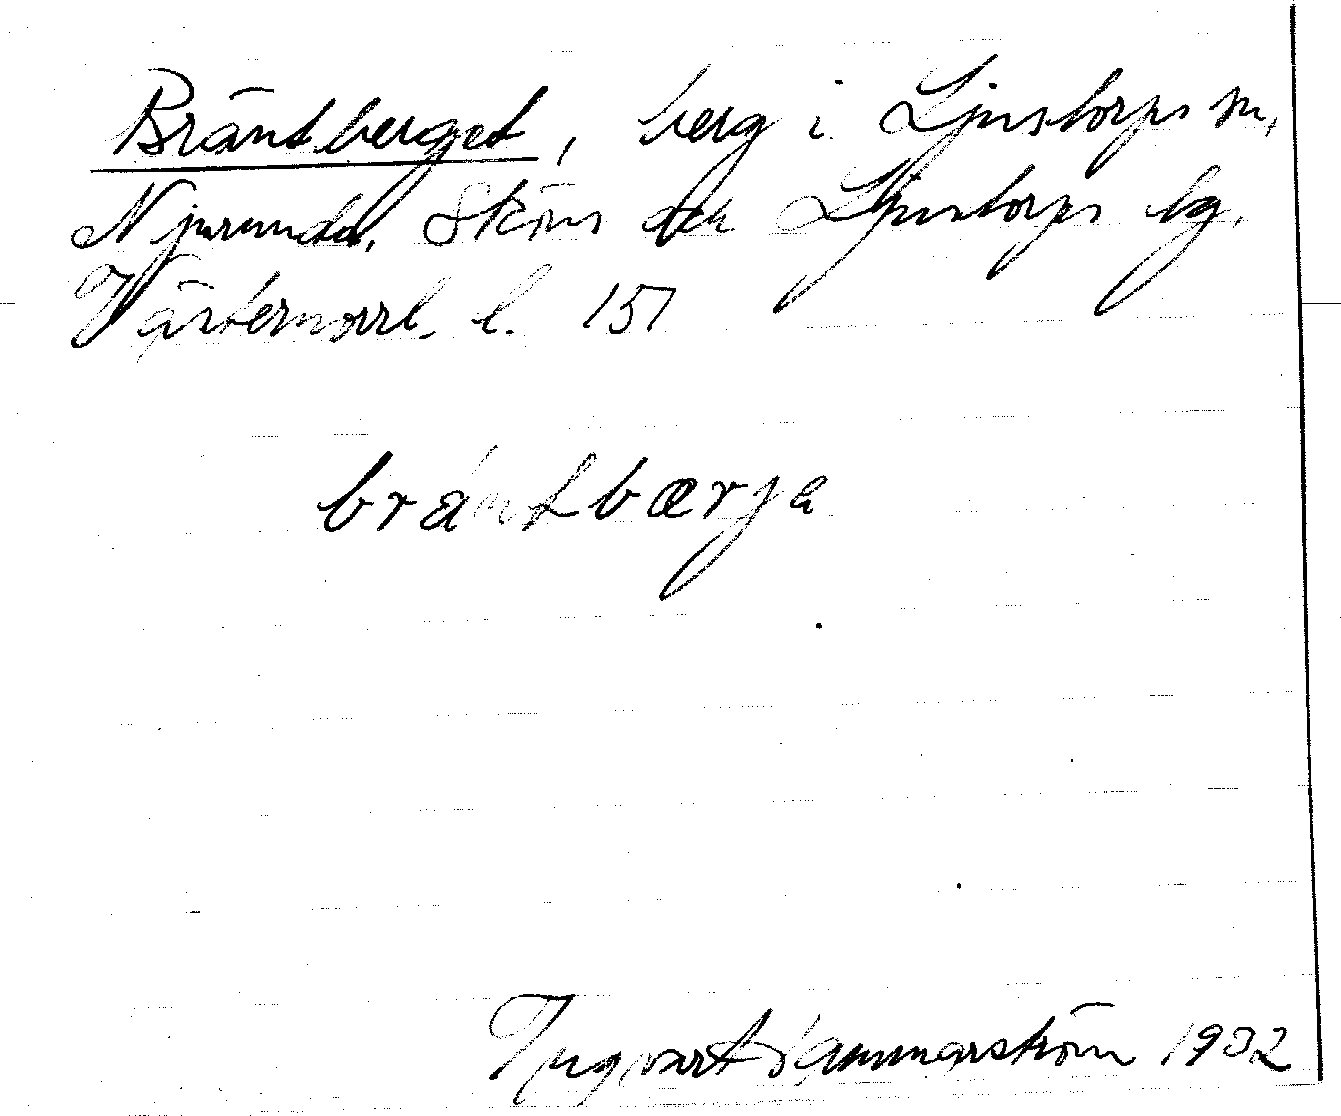 Bräntberget, berg i Ljustorps sn,
Njurunda, Sköns och Ljustorps tg,
Västernorrl. l. 157
brántbærje
Hammarström 1932